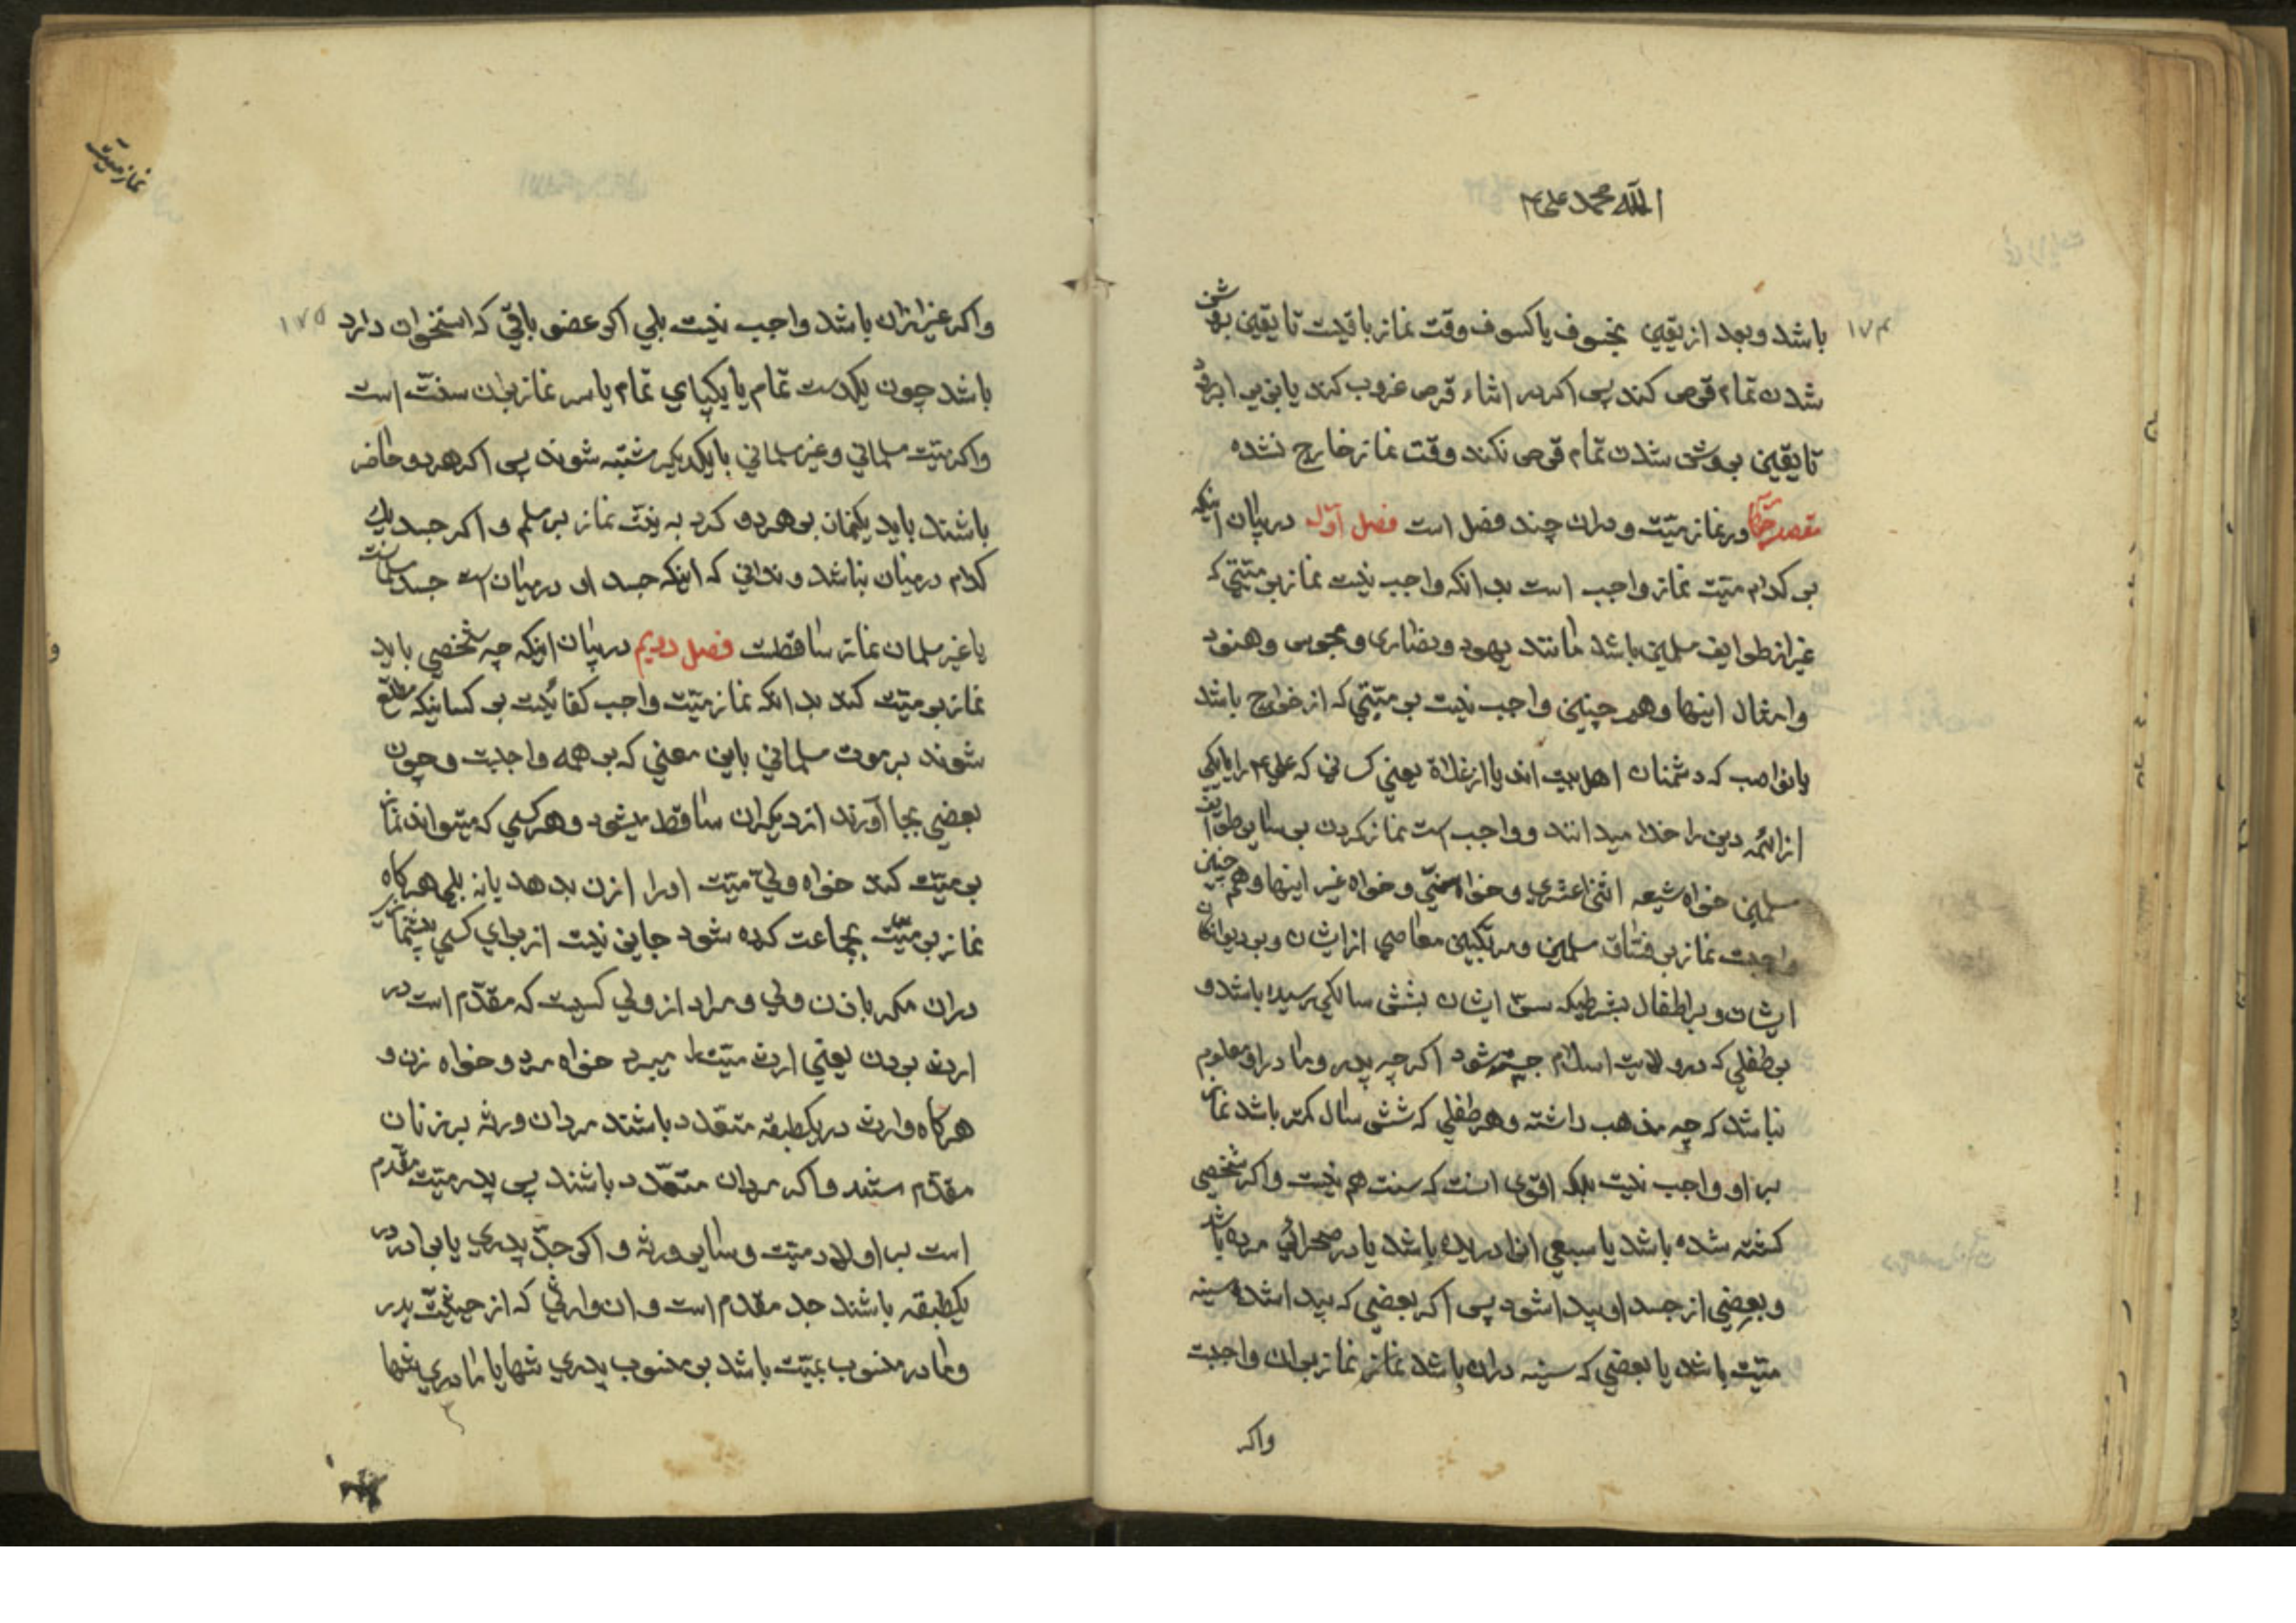 الله محمد علی ع
۱۷۴
باشد و بعد از یقین بخسوف یا کسوف وقت نماز باقیست تا یقین بروشن
شدن تمام قرص کند پس اکر در اثناء قرص غروب کند یا بزیر ابر رود
تا یقین بروشن شدن تمام قرص نکند وقت نماز خارج نشده
مقصد در نماز میّت و دران چند فصل است فصل اوّل در بیان اینکه
بر کدام میّت نماز واجب است بدانکه واجب نیست نماز بر میّتی که
غیر از طوایف مسلمین باشد مانند یهود و نصاری و مجوس و هنود
و امثال اینها و همچنین واجب نیست بر میّتی که از خوارج باشد
یا نواصب که دشمنان اهل بیت اند یا از غلاة یعنی کسانی که علی ع را یا یکی
از ائمّه دین را خدا میدانند و واجب است نماز کردن بر سایر طوایف
مسلمین خواه شیعه اثنی عشری و خواه سنّی و خواه غیر اینها و همچنین
واجبست نماز بر فسّاق مسلمین و مرتکبین معاصی از ایشان و بر دیوانکان
ایشان و بر اطفال بشرطیکه سنّ ایشان بشش سالکی رسیده باشد و
بر طفلی که در ولایت اسلام جسته شود اکر چه پدر و مادر او معلوم
نباشد که چه مذهب داشته و هر طفلی که شش سال کمتر باشد نماز
بر او واجب نیست بلکه اقوی انست که سنت هم نیست و اکر شخصی
کشته شده باشد یا سبعی انرا دریده باشد یا در صحرائی مرده باشد
و بعضی از جسد او پیدا شود پس اکر بعضی که پیدا شده سینه
میّت باشد یا بعضی که سینه دران باشد نماز نماز بران واجبست
واکر
نماز میّت
۱۷۵
واکر غیر ازان باشد واجب نیست بلی اکر عضو باقی که استخوان دارد
باشد چون یکدست تمام یا یکپای تمام یا سر نماز بران سنّت است
واکر میّت مسلمانی و غیر مسلمانی با یکدیکر مشتبه شوند پس اکر هر دو حاضر
باشند باید یکنماز بر هر دو کرد به نیّت نماز بر مسلم و اکر جسد یک
کدام درمیان نباشد و ندانی که اینکه جسد او درمیان است جسد مسلمانست
یا غیر مسلمان نماز ساقطست فصل دویم در بیان اینکه چه شخصی باید
نماز بر میّت کند بدانکه نماز میّت واجب کفائیست بر کسانیکه مطلع
شوند بر موت مسلمانی باین معنی که بر همه واجبست و چون
بعضی بجا آورند از دیکران ساقط میشود و هر کسی که میتواند نماز
بر میّت کند خواه ولیّ میّت او را اذن بدهد یا نه بلی هرکاه
نماز بر میّت بجماعت کرده شود جایز نیست از برای کسی پیشنمازی
دران مکر باذن ولی و مراد از ولی کسیست که مقدّم است در
ارث بردن یعنی ارث میّت را میبرد خواه مرد و خواه زن و
هرکاه وارث در یکطبقه متعدّد باشند مردان ورثه بر زنان
مقدّم ستند و اکر مردان متعدّد باشند پس پدر میّت مقدم
است بر اولاد میّت و سایر ورثه و اکر جدّ پدری یا برادر در
یکطبقه باشند جد مقدم است و ان وارثی که از حیثیّت پدر
و مادر منسوب بمیّت باشد بر منسوب پدری تنها یا مادری تنها